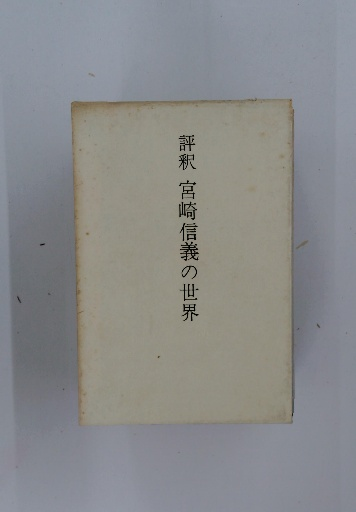 評釈 宮崎信義の世界